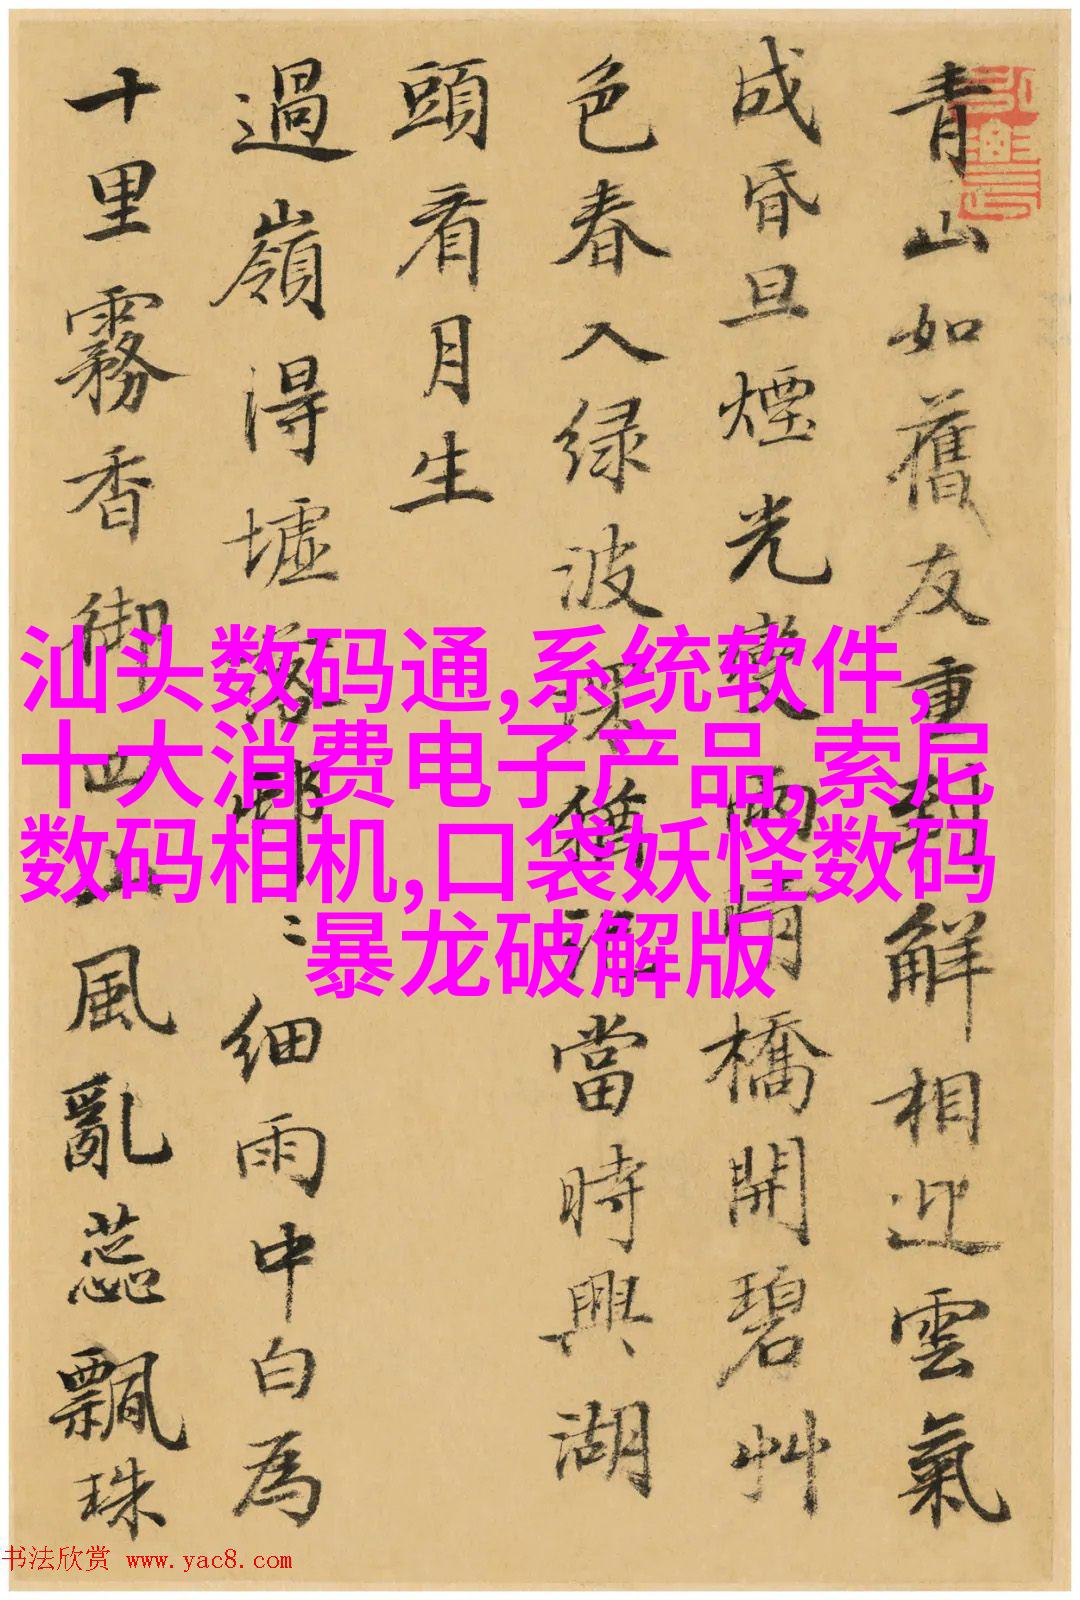 青山如舊友重到解相迎雲氣
成昏旦煙光變雨晴橋開碧艸
色春入绿波深猶當時興湖
頭看月生
過嶺得墟落邨〻細雨中白為
十里霧香御四山風亂蕊飄珠
汕头数码通,系统软件,
十大消费电子产品,索尼
数码相机,口袋妖怪数码
暴龙破解版
书法欣赏 www.yac8.com